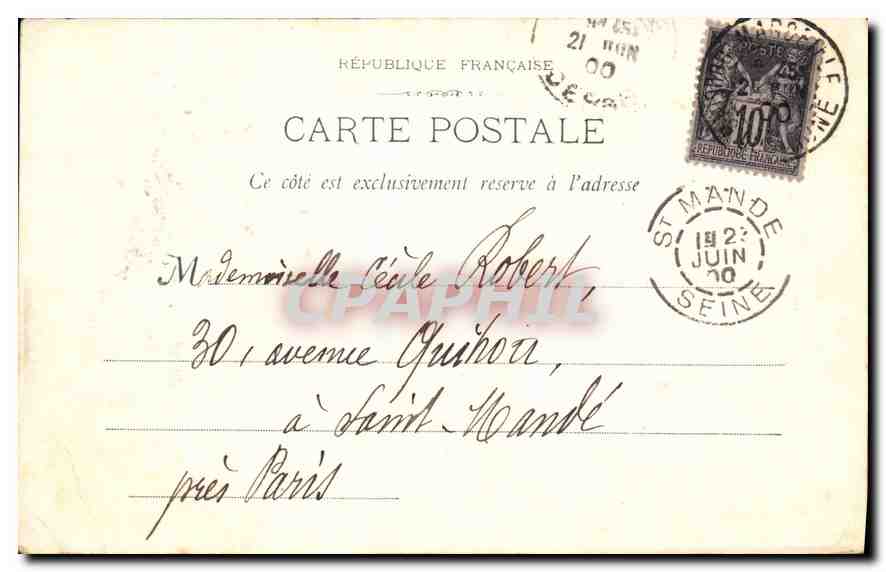 RÉPUBLIQUE FRANÇAISE
CARTE POSTALE
Ce côté est exclusivement reserve à l'adresse
21 JUIN
00
POSTE
10
REPUBLIQUE FRANÇAISE
ST MANDE
1E 23
JUIN
00
SEINE
Mademoiselle Cécile Robert,
CPAPHIL
30, avenue Quihou,
à Saint-Mandé
près Paris